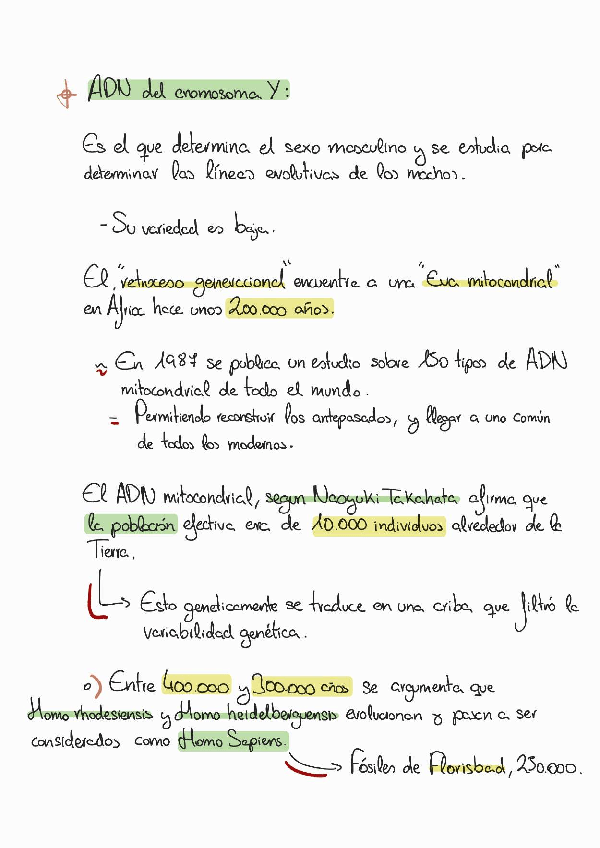 ADN del cromosoma Y:
Es el que determina el sexo masculino y se estudia para
determinar las líneas evolutivas de los machos.
- Su variedad es baja.
El "retroceso generaccional" encuentra a una "Eva mitocondrial"
en África hace unos 200.000 años.
En 1987 se publica un estudio sobre 150 tipos de ADN
mitocondrial de todo el mundo.
= Permitiendo reconstruir los antepasados, y llegar a uno común
de todos los modernos.
El ADN mitocondrial, segun Naoyuki Takahata afirma que
la población efectiva era de 10.000 individuos alrededor de la
Tierra.
Esto geneticamente se traduce en una criba que filtró la
variabilidad genética.
o) Entre 400.000 y 300.000 años se argumenta que
Homo rhodesiensis y Homo heidelberguensis evolucionan y pasan a ser
considerados como Homo Sapiens.
Fósiles de Florisbad, 250.000.